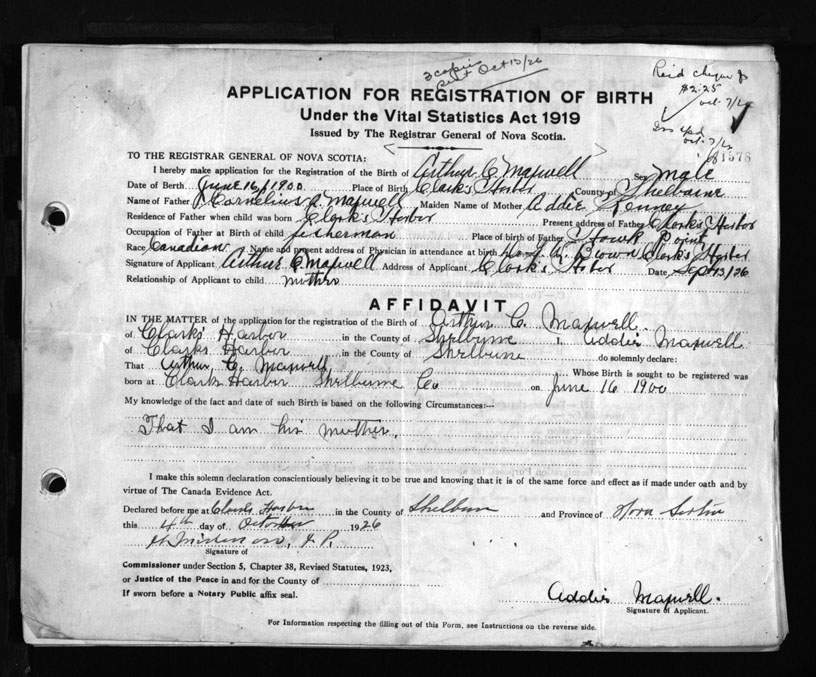 3 copies
sent Oct 15/26
Recd cheque for
$2.25
Oct. 7/26
Oct. 7/26
1578
APPLICATION FOR REGISTRATION OF BIRTH
Under the Vital Statistics Act 1919
Issued by The Registrar General of Nova Scotia.
TO THE REGISTRAR GENERAL OF NOVA SCOTIA:
I hereby make application for the Registration of the Birth of Arthur C Maxwell Sex Male
Date of Birth June 16, 1900 Place of Birth Clark's Harbor County of Shelburne
Name of Father Cornelius A. Maxwell Maiden Name of Mother Addie Kenney
Residence of Father when child was born Clark's Harbor Present address of Father Clark's Harbor
Occupation of Father at Birth of child fisherman Place of birth of Father Point
Race Canadian Name and present address of Physician in attendance at birth Brown Clark's Harbor
Signature of Applicant Arthur C. Maxwell Address of Applicant Clark's Harbor Date Sept 13/26
Relationship of Applicant to child mother
AFFIDAVIT
IN THE MATTER of the application for the registration of the Birth of Arthur C. Maxwell.
of Clarks Harbor in the County of Shelburne I, Addie Maxwell
of Clarks Harbor in the County of Shelburne do solemnly declare:
That Arthur, C. Maxwell Whose Birth is sought to be registered was
born at Clarks Harbor Shelburne Co on June 16 1900
My knowledge of the fact and date of such Birth is based on the following Circumstances:—
That I am his mother.
I make this solemn declaration conscientiously believing it to be true and knowing that it is of the same force and effect as if made under oath and by
virtue of The Canada Evidence Act.
Declared before me at Clarks Harbor in the County of Shelburne and Province of Nova Scotia
this 4th day of October 1926
J. P.
Signature of
Commissioner under Section 5, Chapter 38, Revised Statutes, 1923,
or Justice of the Peace in and for the County of
If sworn before a Notary Public affix seal.
Addie Maxwell.
Signature of Applicant.
For Information respecting the filling out of this Form, see Instructions on the reverse side.